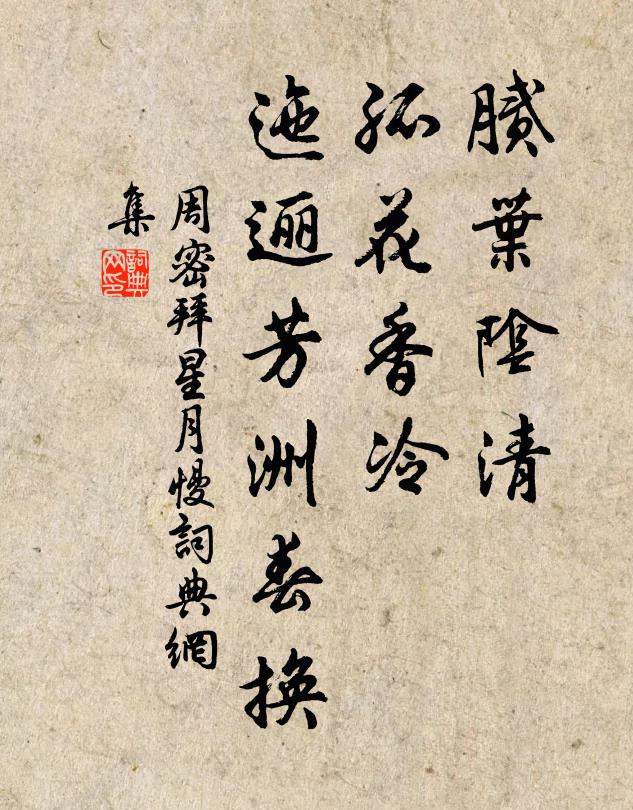 膩葉陰清
孤花香冷
迤邐芳洲春換
周密拜星月慢詞典網
集
詞典
网印